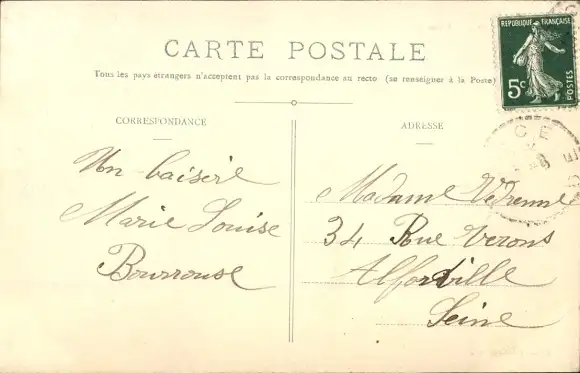 CARTE POSTALE
Tous les pays étrangers n'acceptent pas la correspondance au recto (se renseigner à la Poste)
REPUBLIQUE FRANÇAISE
5c
POSTES
CORRESPONDANCE
Un baiser
Marie Louise
Bourrouse
ADRESSE
Madame Vedrenne
34 Rue Verons
Alfortville
Seine